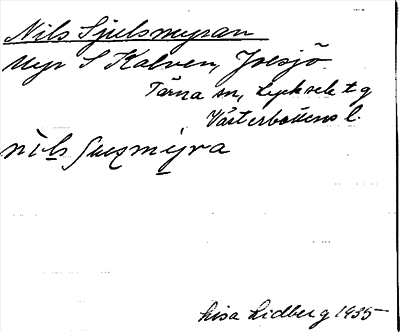 Nils Sjulsmyran
Myr S Kalven, Joesjö
Tärna sn, Lycksele tg
Västerbottens l.
nils
Lisa Lidberg 1935